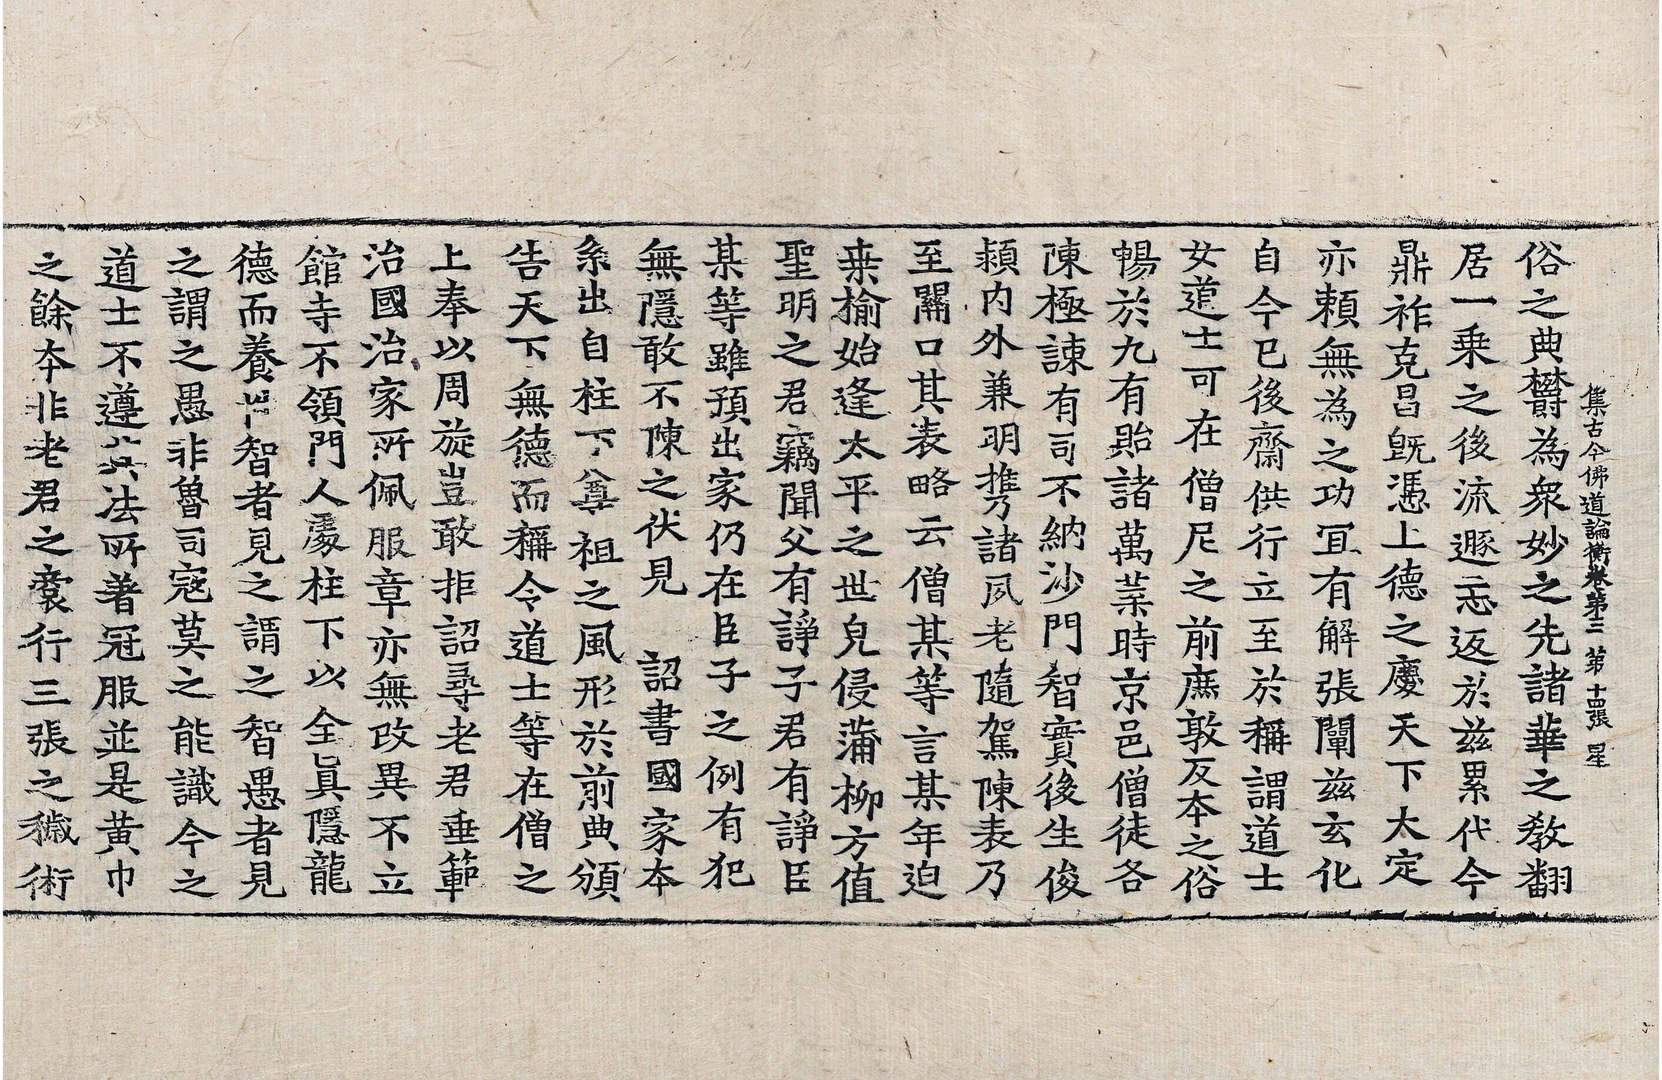 集古今佛道論衡卷第三 第十四張 星
俗之典欝為衆妙之先諸華之教翻
居一乗之後流遯忘返於兹累代今
鼎祚克昌既憑上德之慶天下太定
亦頼無為之功冝有解張闡兹玄化
自今已後齋供行立至於稱謂道士
女道士可在僧尼之前庶敦反本之俗
暢於九有貽諸萬葉時京邑僧徒各
陳極諫有司不納沙門智實後生俊
頴内外兼明携諸夙老隨駕陳表乃
至關口其表略云僧某等言某年迫
桒榆始逢太平之世皃侵蒲柳方值
聖明之君竊聞父有諍子君有諍臣
某等雖預出家仍在臣子之例有犯
無隱敢不陳之伏見 詔書國家本
系出自柱下尊祖之風形於前典頒
告天下無德而稱令道士等在僧之
上奉以周旋豈敢拒詔尋老君垂範
治國治家所佩服章亦無改異不立
館寺不領門人處柱下以全眞隱龍
德而養性智者見之謂之智愚者見
之謂之愚非魯司寇莫之能識今之
道士不遵其法所著冠服並是黄巾
之餘本非老君之裔行三張之穢術